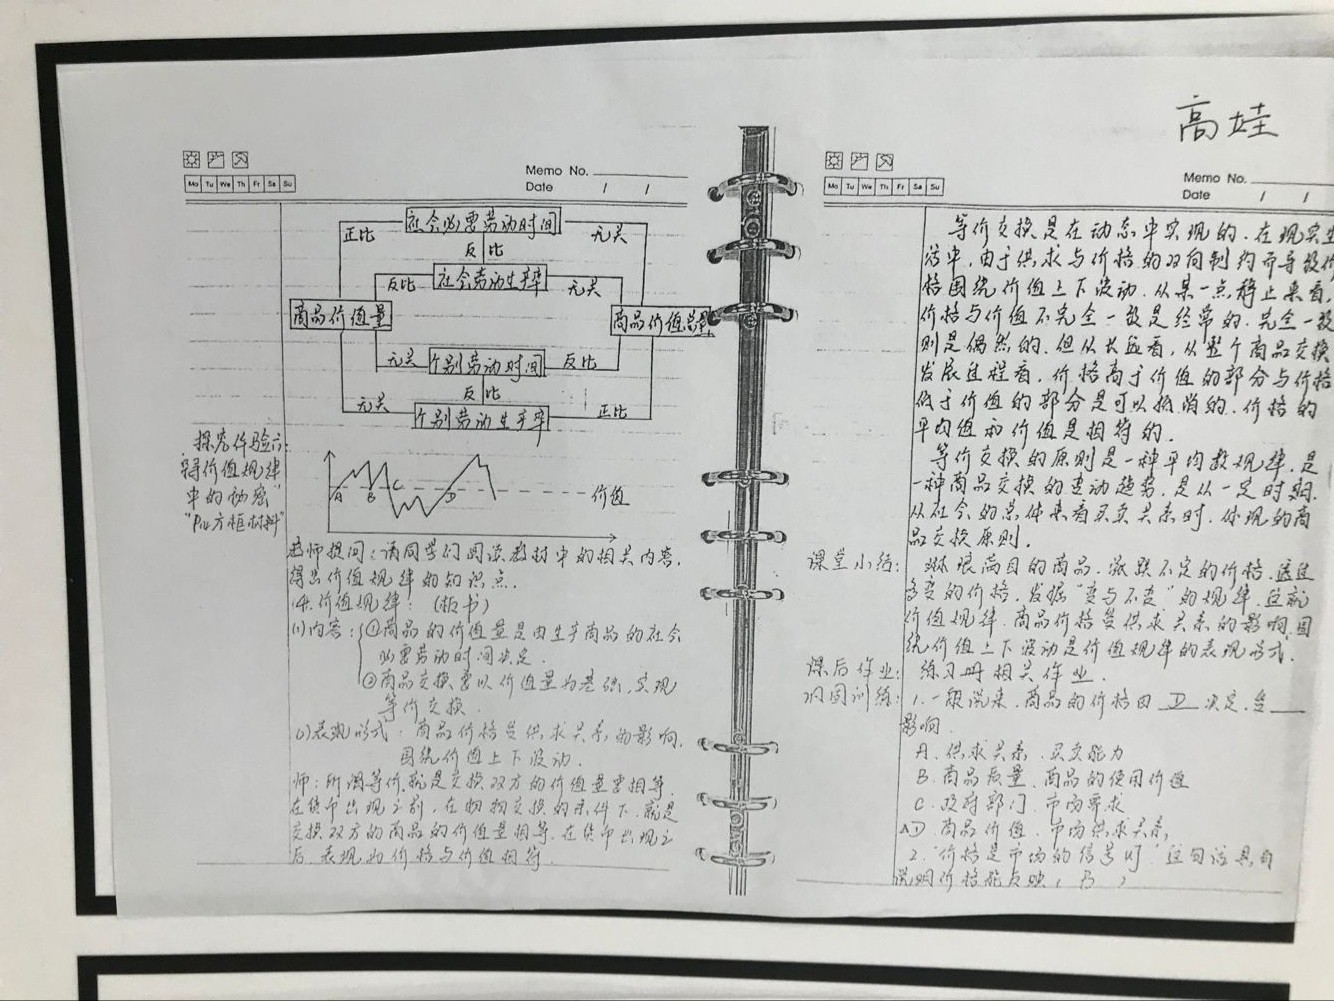 高娃
Memo No.
Date / /
Mo Tu We Th Fr Sa Su
社会必要劳动时间
正比
无关
反比
社会劳动生产率
反比
无关
商品价值量
商品价值总量
无关
个别劳动时间
反比
反比
无关
个别劳动生产率
正比
探究体验六:
寻价值规律
中的秘密"
"P14方框材料"
A B C D 价值
老师提问:请同学们阅读教材中的相关内容,
得出价值规律的知识点.
4.价值规律:(板书)
(1)内容:①商品的价值量是由生产商品的社会
必要劳动时间决定.
②商品交换要以价值量为基础,实现
等价交换.
(2)表现形式:商品价格受供求关系的影响,
围绕价值上下波动.
师:所谓等价,就是交换双方的价值量要相等.
在货币出现之前,在物物交换的条件下,就是
交换双方的商品的价值量相等.在货币出现之
后,表现为价格与价值相符.
Memo No.
Date / /
Mo Tu We Th Fr Sa Su
等价交换是在动态中实现的.在现实生
活中,由于供求与价格的双向制约而导致价
格围绕价值上下波动.从某一点静止来看,
价格与价值不完全一致是经常的.完全一致
则是偶然的.但从长远看,从整个商品交换
发展过程看,价格高于价值的部分与价格
低于价值的部分是可以抵消的.价格的
平均值和价值是相符的.
等价交换的原则是一种平均数规律,是
一种商品交换的变动趋势,是从一定时期,
从社会的总体来看买卖关系时,体现的商
品交换原则.
课堂小结: 琳琅满目的商品,涨跌不定的价格.透过
多变的价格,发掘"变与不变"的规律.这就
价值规律.商品价格受供求关系的影响,围
绕价值上下波动是价值规律的表现形式.
课后作业: 练习册相关作业.
巩固训练: 1.一般说来,商品的价格由 D 决定,受
影响.
A.供求关系.买卖能力
B.商品质量.商品的使用价值
C.政府部门.市场需求
D.商品价值.市场供求关系
2."价格是市场的信号灯".这句话具自
说明价格能反映( B )